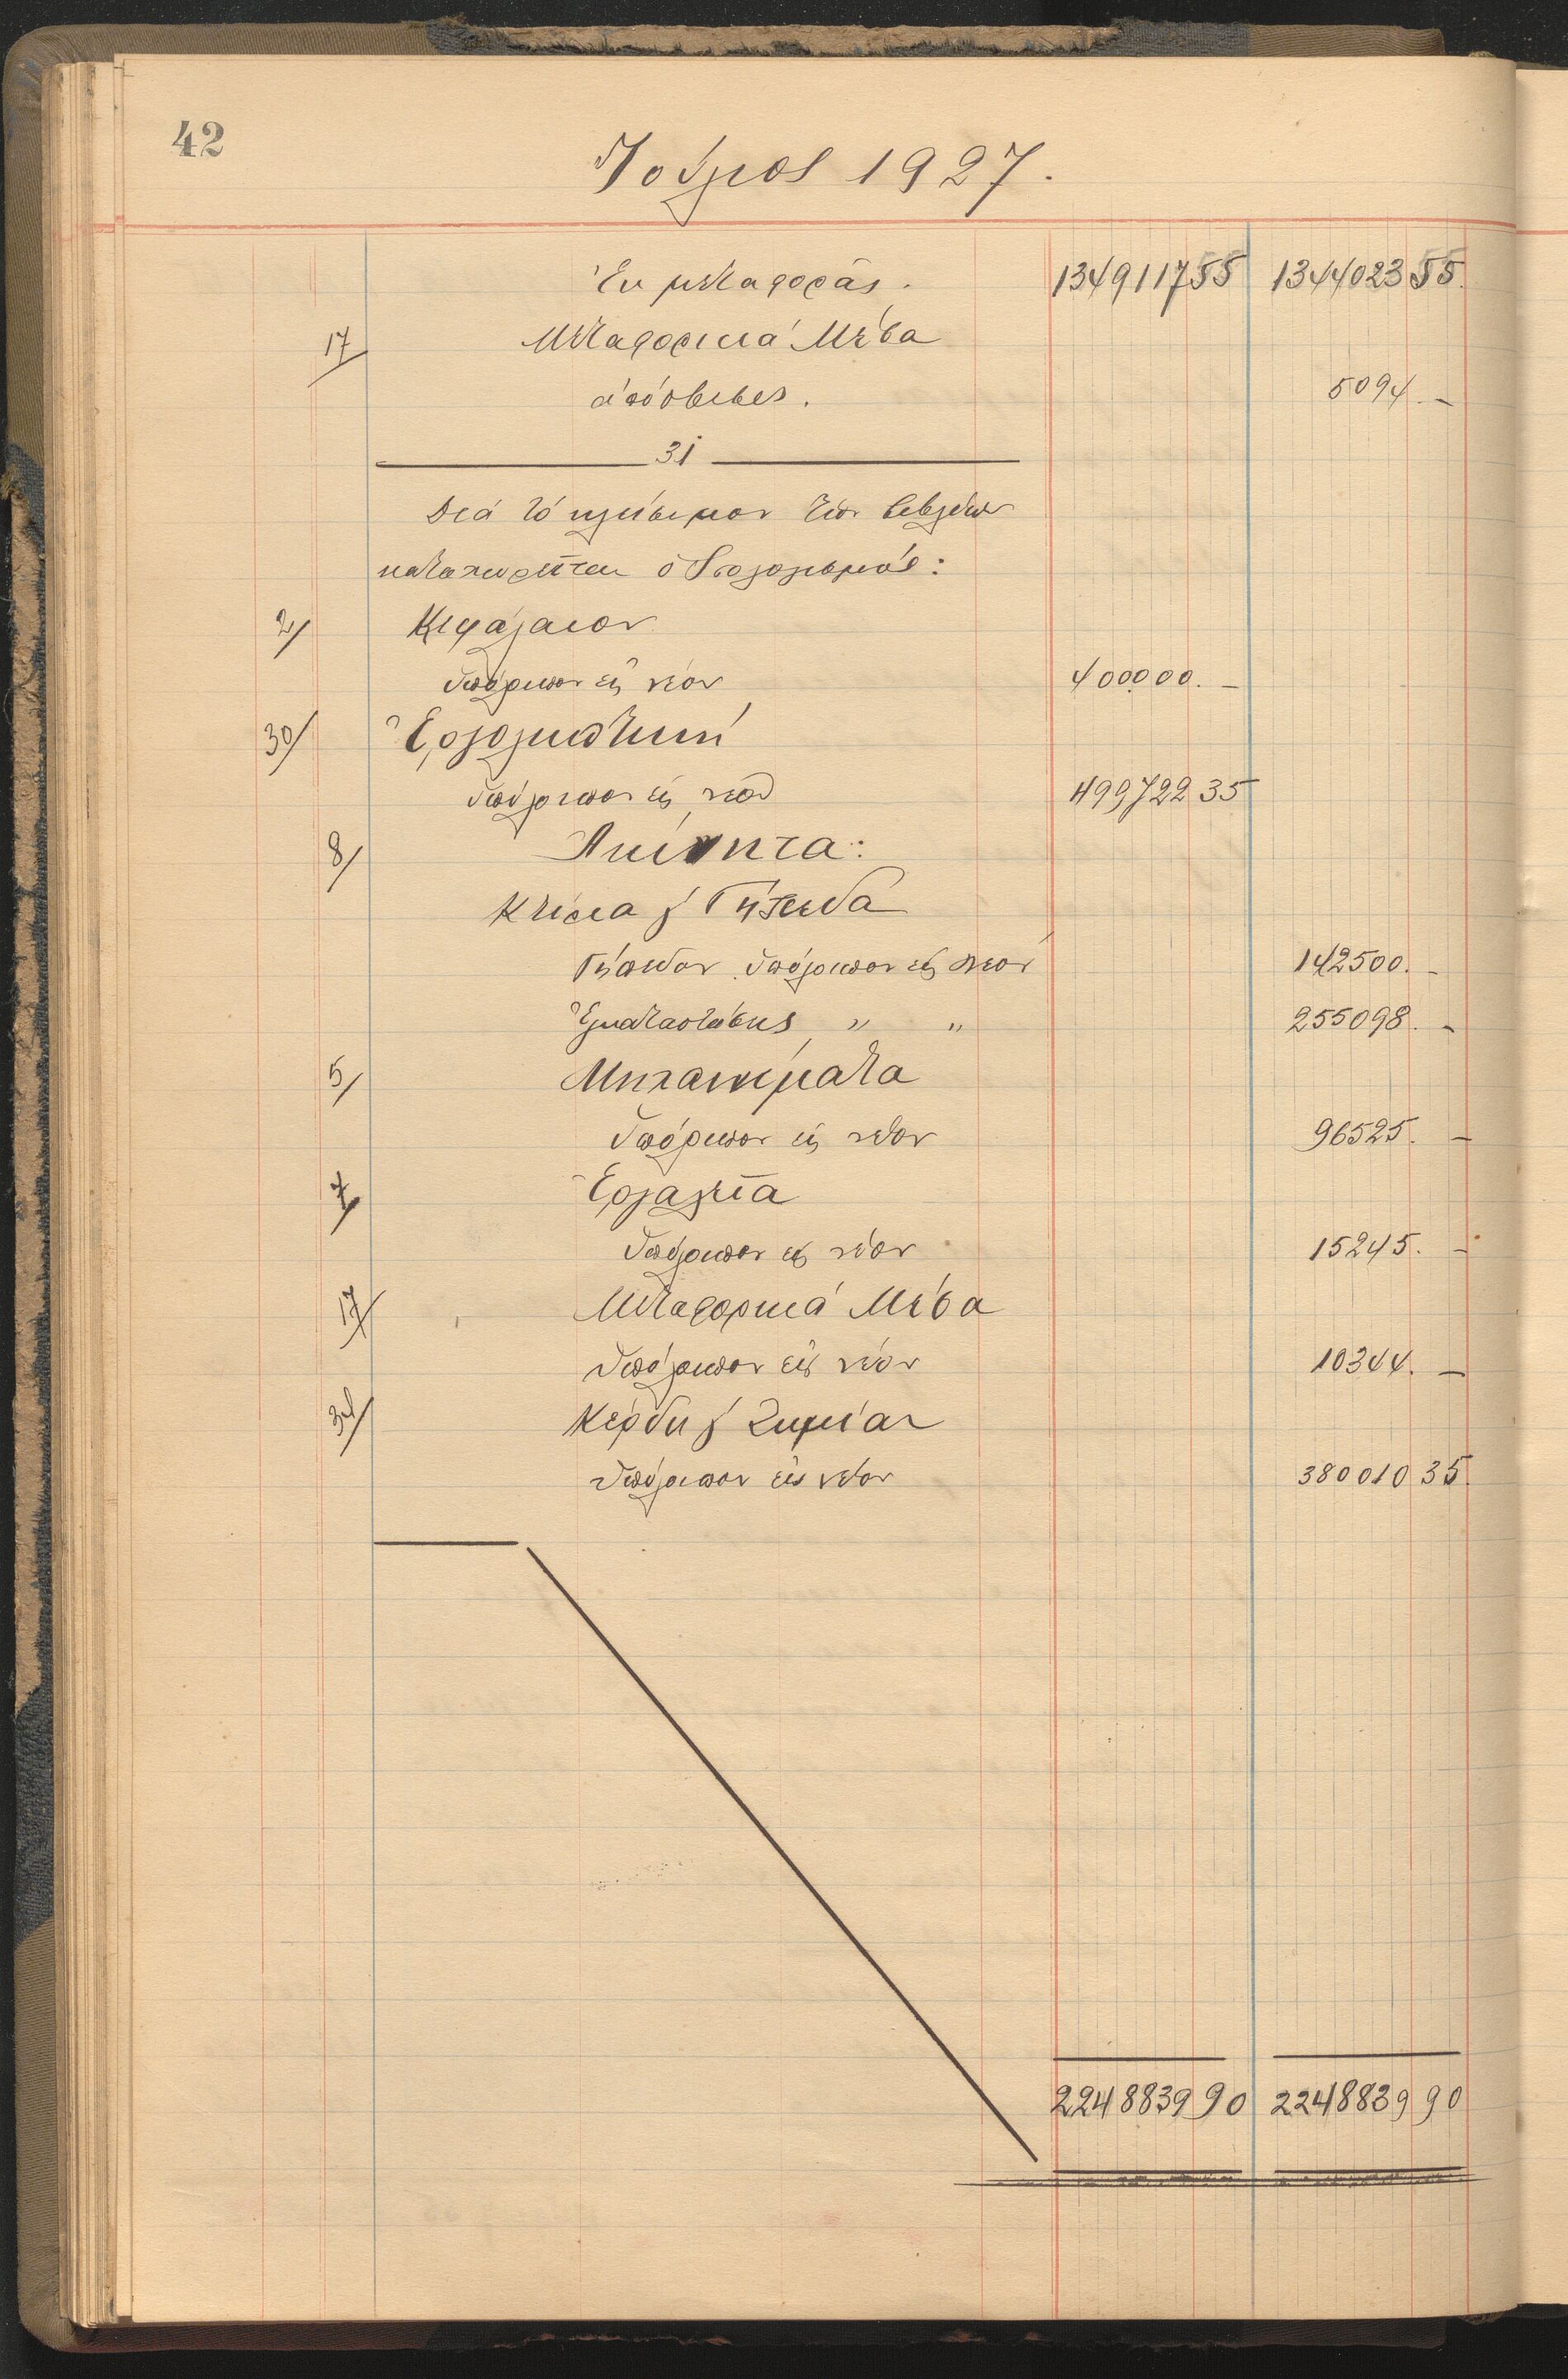 42
Ἰούλιος 1927.
Ἐκ μεταφορᾶς. 1349117 55 1344023 55
17/ Μεταφορικά Μέσα
ἀπόσβεσις. 5094. —
31
Διά τό κλείσιμον τῶν βιβλίων
καταχωρεῖται ὁ Ἰσολογισμός:
2/ Κεφάλαιον
ὑπόλοιπον εἰς νέον 400000. —
30/ Ἐργοληπτική
ὑπόλοιπον εἰς νέον 499722 35
8/ Ἀκίνητα:
Κτίρια & Γήπεδα
Γήπεδον ὑπόλοιπον εἰς νέον 142500. —
Ἐγκαταστάσεις " " 255098. —
5/ Μηχανήματα
ὑπόλοιπον εἰς νέον 96525. —
7/ Ἐργαλεῖα
ὑπόλοιπον εἰς νέον 15245. —
17/ Μεταφορικά Μέσα
ὑπόλοιπον εἰς νέον 10344. —
34/ Κέρδη & Ζημίαι
ὑπόλοιπον εἰς νέον 380010 35
2248839 90 2248839 90